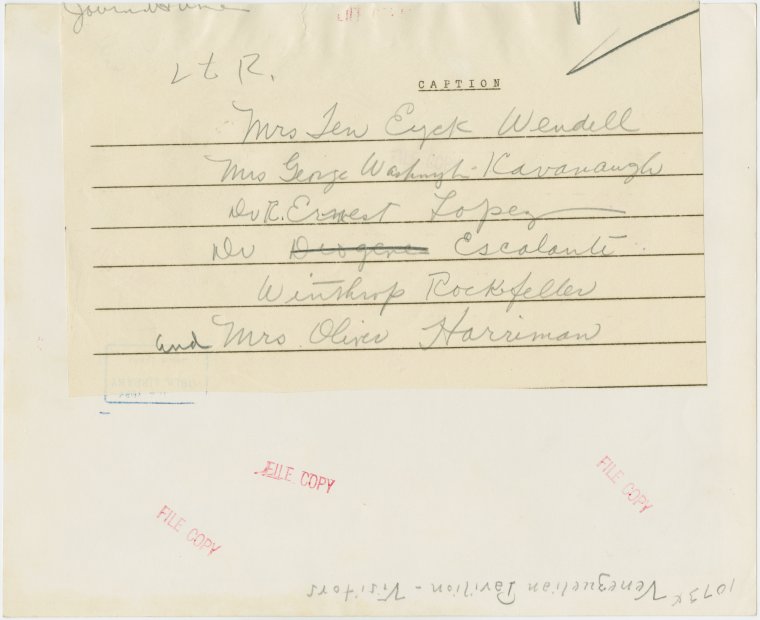 L to R.
CAPTION
Mrs Ten Eyck Wendell
Mrs George Washington Kavanaugh
Dr R. Ernest Lopez
Dr Diogene Escalante
Winthrop Rockfeller
and Mrs Oliver Harriman
FILE COPY
FILE COPY
FILE COPY
1073x Venezuelian Pavilion - Visitors